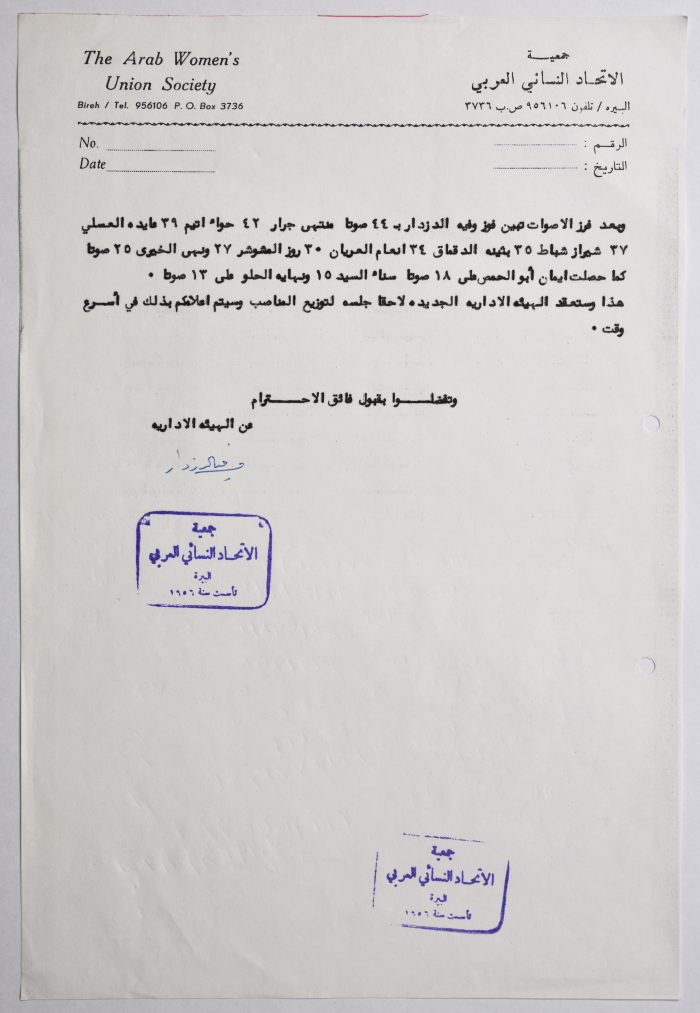 The Arab Women's
Union Society
Bireh / Tel. 956106 P. O. Box 3736
جمعيــة
الاتحاد النسائي العربي
البيره / تلفون ٩٥٦١٠٦ ص.ب ٣٧٣٦
No.
Date
الرقـم :
التاريخ :
وبعد فرز الاصوات تبين فوز وفيه الدزدار بـ ٤٤ صوتا منتهى جرار ٤٢ حواء اتيم ٣٩ عايده العسلي
٣٧ شيراز شباط ٣٥ بثينه الدقماق ٣٤ انعام العريان ٣٠ روز الشوشر ٢٧ ونهى الخيرى ٢٥ صوتا
كما حصلت ايمان أبو الحمص على ١٨ صوتا سناء السيد ١٥ ونهايه الحلو على ١٣ صوتا ٠
هذا وستعقد الهيئه الاداريه الجديده لاحقا جلسه لتوزيع المناصب وسيتم اعلامكم بذلك في أسرع
وقت ٠
وتفضلـــوا بقبول فائق الاحــترام
عن الهيئه الاداريه
جمعية
الاتحاد النسائي العربي
البيرة
تأسست سنة ١٩٥٦
جمعية
الاتحاد النسائي العربي
البيرة
تأسست سنة ١٩٥٦